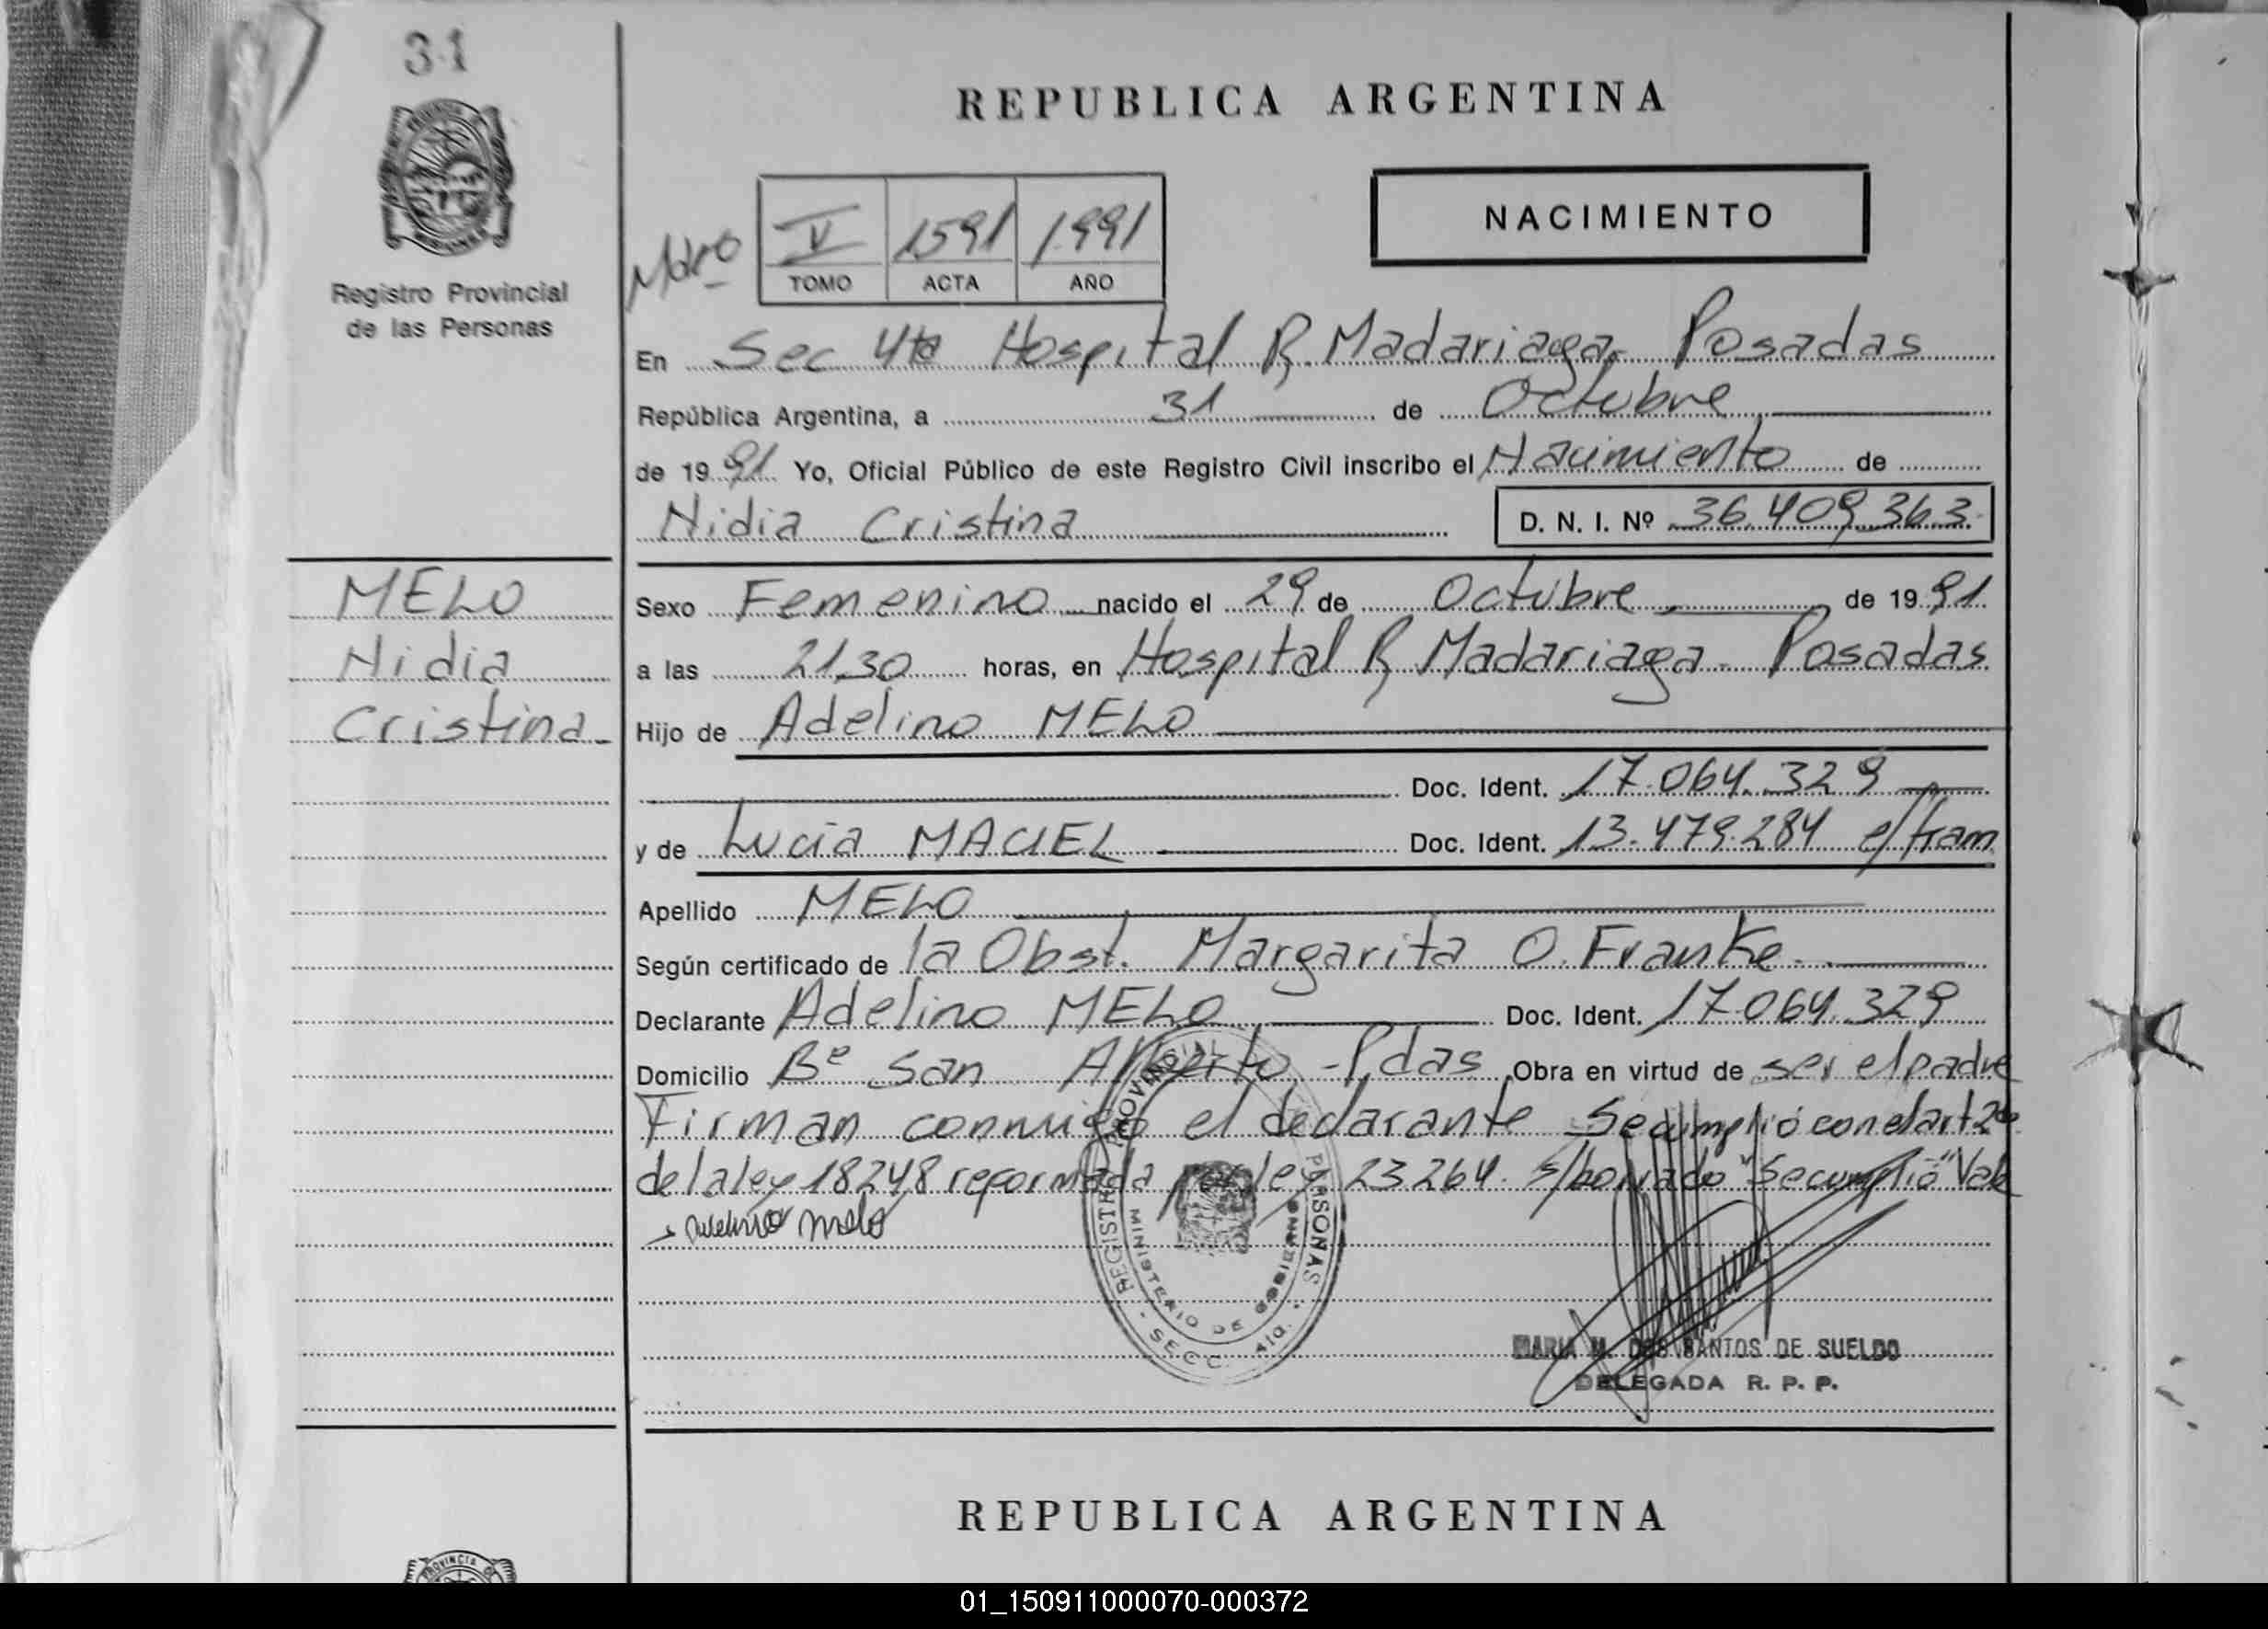 31
Registro Provincial
de las Personas
MELO
Nidia
Cristina
REPUBLICA ARGENTINA
V 1591 1991
TOMO ACTA AÑO
NACIMIENTO
En Sec 4ta Hospital R. Madariaga. Posadas
República Argentina, a 31 de Octubre
de 1991 Yo, Oficial Público de este Registro Civil inscribo el Nacimiento de
Nidia Cristina D. N. I. Nº 36.409.363
Sexo Femenino nacido el 29 de Octubre de 1991
a las 21,30 horas, en Hospital R. Madariaga - Posadas
Hijo de Adelino MELO
Doc. Ident. 17.064.329
y de Lucia MACIEL Doc. Ident. 13.479.284 e/tram
Apellido MELO
Según certificado de la Obst. Margarita O. Franke
Declarante Adelino MELO Doc. Ident. 17.064.329
Domicilio Bº San Alberto - Pdas Obra en virtud de ser el padre
Firman conmigo el declarante Se cumplió con el art 2do
de la ley 18248 reformada por ley 23264. s/borrado "Se cumplió" Vale
melo
REGISTRO PROVINCIAL PERSONAS
MINISTERIO DE
- SECC. 4ta. -
MARIA M. DOS SANTOS DE SUELDO
DELEGADA R. P. P.
REPUBLICA ARGENTINA
PROVINCIA DE
01_150911000070-000372